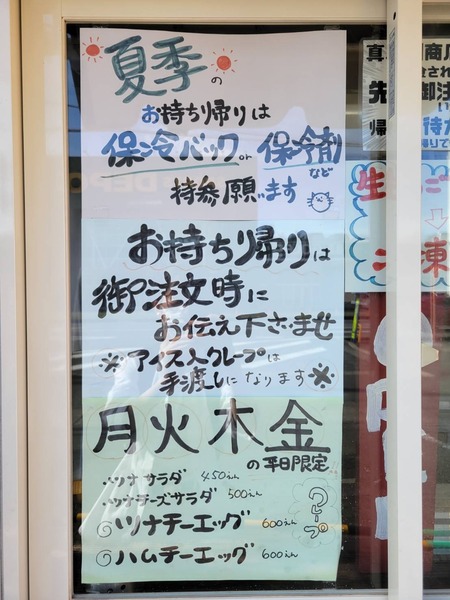 夏季の
お持ち帰りは
保冷バックor保冷剤
など
持参願います
お持ち帰りは
御注文時に
お伝え下さいませ
※アイス入クレープは
手渡しになります※
月火木金
の平日限定
・ツナサラダ 450えん
・ツナチーズサラダ 500えん
ツナチーエッグ 600えん
ハムチーエッグ 600えん
クレープ